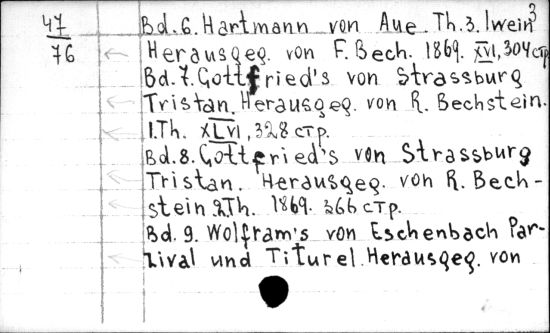 47
76
Bd. 6. Hartmann von Aue Th. 3. Iwein³
Herausgeg. von F. Bech. 1869. XVI, 304 стр
Bd. 7. Gottfried's von Strassburg
Tristan. Herausgeg. von R. Bechstein.
I. Th. XLVI, 328 стр.
Bd. 8. Gottfried's von Strassburg
Tristan. Herausgeg. von R. Bech-
stein 2 Th. 1869. 366 стр.
Bd. 9. Wolfram's von Eschenbach Par-
zival und Titurel. Herausgeg. von